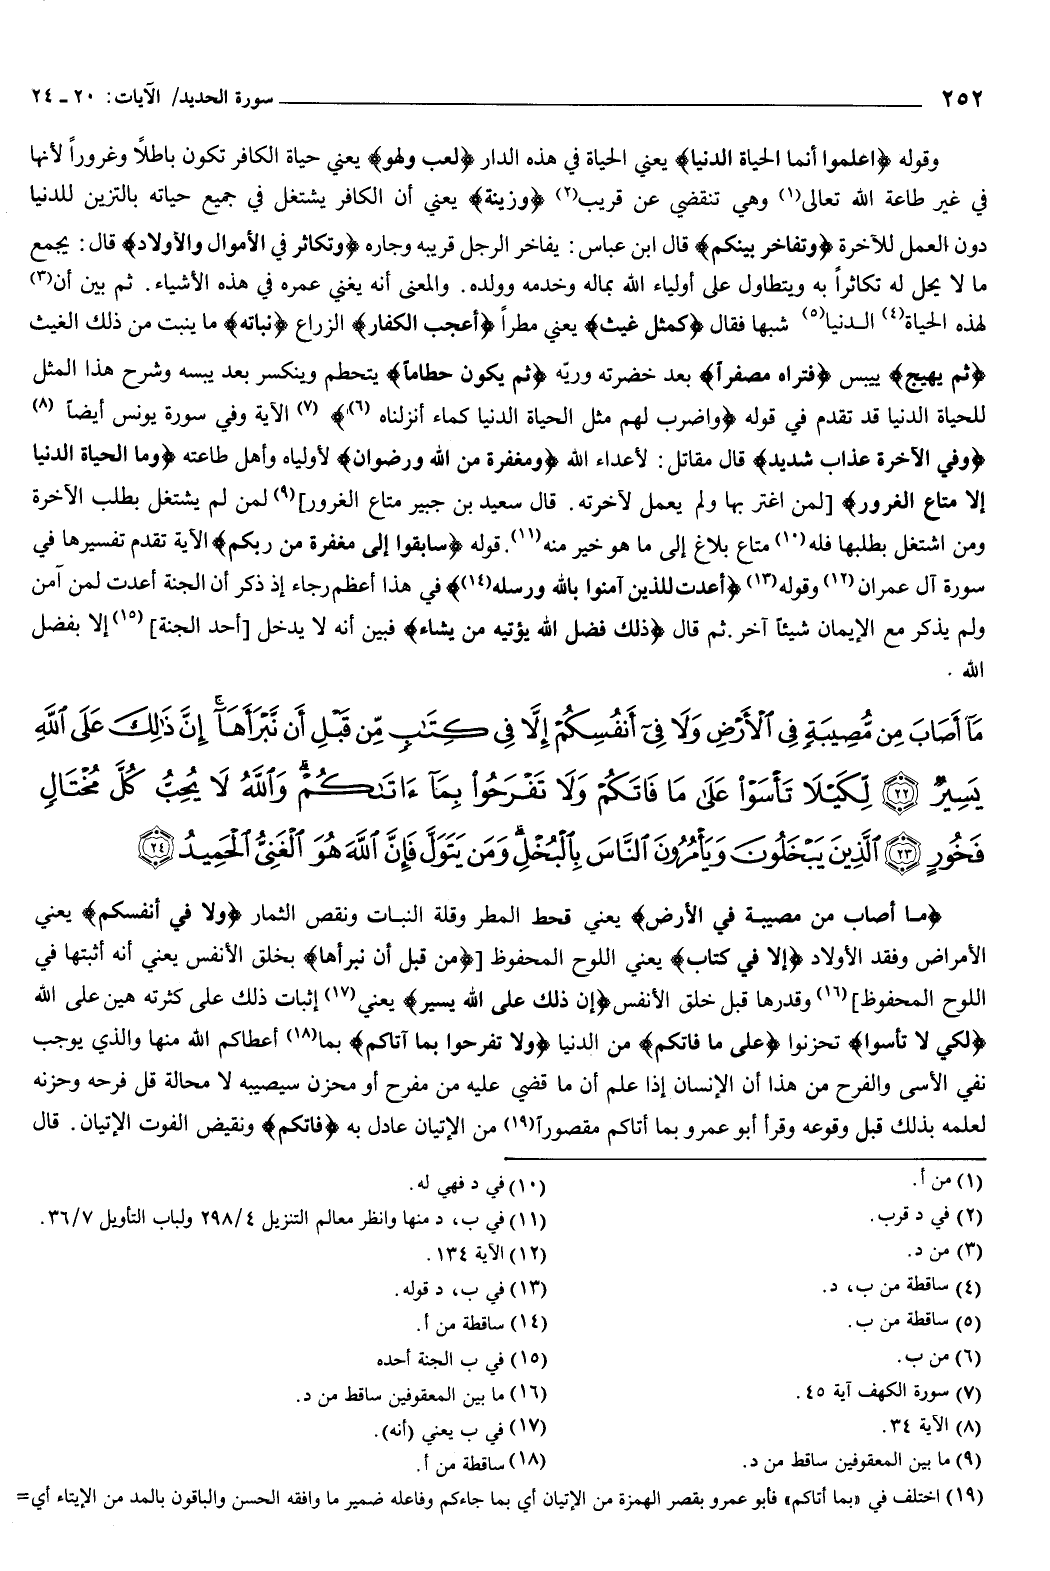 ٢٥٢ سورة الحديد/ الآيات: ٢٠ ـ ٢٤
وقوله ﴿اعلموا أنما الحياة الدنيا﴾ يعني الحياة في هذه الدار ﴿لعب ولهو﴾ يعني حياة الكافر تكون باطلاً وغروراً لأنها
في غير طاعة الله تعالى(١) وهي تنقضي عن قريب(٢) ﴿وزينة﴾ يعني أن الكافر يشتغل في جميع حياته بالتزين للدنيا
دون العمل للآخرة ﴿وتفاخر بينكم﴾ قال ابن عباس: يفاخر الرجل قريبه وجاره ﴿وتكاثر في الأموال والأولاد﴾ قال: يجمع
ما لا يحل له تكاثراً به ويتطاول على أولياء الله بماله وخدمه وولده. والمعنى أنه يغني عمره في هذه الأشياء. ثم بين أن(٣)
لهذه الحياة(٤) الدنيا(٥) شبها فقال ﴿كمثل غيث﴾ يعني مطراً ﴿أعجب الكفار﴾ الزراع ﴿نباته﴾ ما ينبت من ذلك الغيث
﴿ثم يهيج﴾ ييبس ﴿فتراه مصفراً﴾ بعد خضرته وريّه ﴿ثم يكون حطاماً﴾ يتحطم وينكسر بعد يبسه وشرح هذا المثل
للحياة الدنيا قد تقدم في قوله ﴿واضرب لهم مثل الحياة الدنيا كماء أنزلناه (٦)﴾ (٧) الآية وفي سورة يونس أيضاً (٨)
﴿وفي الآخرة عذاب شديد﴾ قال مقاتل: لأعداء الله ﴿ومغفرة من الله ورضوان﴾ لأولياه وأهل طاعته ﴿وما الحياة الدنيا
إلا متاع الغرور﴾ [لمن اغتر بها ولم يعمل لآخرته. قال سعيد بن جبير متاع الغرور](٩) لمن لم يشتغل بطلب الآخرة
ومن اشتغل بطلبها فله(١٠) متاع بلاغ إلى ما هو خير منه(١١). قوله ﴿سابقوا إلى مغفرة من ربكم﴾ الآية تقدم تفسيرها في
سورة آل عمران(١٢) وقوله(١٣) ﴿أعدت للذين آمنوا بالله ورسله(١٤)﴾ في هذا أعظم رجاء إذ ذكر أن الجنة أعدت لمن آمن
ولم يذكر مع الإيمان شيئاً آخر. ثم قال ﴿ذلك فضل الله يؤتيه من يشاء﴾ فبين أنه لا يدخل [أحد الجنة] (١٥) إلا بفضل
الله .
مَآ أَصَابَ مِن مُّصِيبَةٍ فِي ٱلْأَرْضِ وَلَا فِيٓ أَنفُسِكُمْ إِلَّا فِي كِتَٰبٍ مِّن قَبْلِ أَن نَّبْرَأَهَآ ۚ إِنَّ ذَٰلِكَ عَلَى ٱللَّهِ
يَسِيرٌ ﴿٢٢﴾ لِّكَيْلَا تَأْسَوْا۟ عَلَىٰ مَا فَاتَكُمْ وَلَا تَفْرَحُوا۟ بِمَآ ءَاتَىٰكُمْ ۗ وَٱللَّهُ لَا يُحِبُّ كُلَّ مُخْتَالٍ
فَخُورٍ ﴿٢٣﴾ ٱلَّذِينَ يَبْخَلُونَ وَيَأْمُرُونَ ٱلنَّاسَ بِٱلْبُخْلِ ۗ وَمَن يَتَوَلَّ فَإِنَّ ٱللَّهَ هُوَ ٱلْغَنِيُّ ٱلْحَمِيدُ ﴿٢٤﴾
﴿ما أصاب من مصيبة في الأرض﴾ يعني قحط المطر وقلة النبات ونقص الثمار ﴿ولا في أنفسكم﴾ يعني
الأمراض وفقد الأولاد ﴿إلا في كتاب﴾ يعني اللوح المحفوظ [﴿من قبل أن نبرأها﴾ بخلق الأنفس يعني أنه أثبتها في
اللوح المحفوظ](١٦) وقدرها قبل خلق الأنفس ﴿إن ذلك على الله يسير﴾ يعني(١٧) إثبات ذلك على كثرته هين على الله
﴿لكي لا تأسوا﴾ تحزنوا ﴿على ما فاتكم﴾ من الدنيا ﴿ولا تفرحوا بما آتاكم﴾ بما(١٨) أعطاكم الله منها والذي يوجب
نفي الأسى والفرح من هذا أن الإنسان إذا علم أن ما قضي عليه من مفرح أو محزن سيصيبه لا محالة قل فرحه وحزنه
لعلمه بذلك قبل وقوعه وقرأ أبو عمرو بما أتاكم مقصوراً(١٩) من الإتيان عادل به ﴿فاتكم﴾ ونقيض الفوت الإتيان. قال
(١) من أ.
(٢) في د قرب.
(٣) من د.
(٤) ساقطة من ب، د.
(٥) ساقطة من ب.
(٦) من ب.
(٧) سورة الكهف آية ٤٥.
(٨) الآية ٣٤.
(٩) ما بين المعقوفين ساقط من د.
(١٠) في د فهي له.
(١١) في ب، د منها وانظر معالم التنزيل ٢٩٨/٤ ولباب التأويل ٣٦/٧.
(١٢) الآية ١٣٤.
(١٣) في ب، د قوله.
(١٤) ساقطة من أ.
(١٥) في ب الجنة أحده
(١٦) ما بين المعقوفين ساقط من د.
(١٧) في ب يعني (أنه).
(١٨) ساقطة من أ.
(١٩) اختلف في «بما أتاكم» فأبو عمرو بقصر الهمزة من الإتيان أي بما جاءكم وفاعله ضمير ما وافقه الحسن والباقون بالمد من الإيتاء أي=